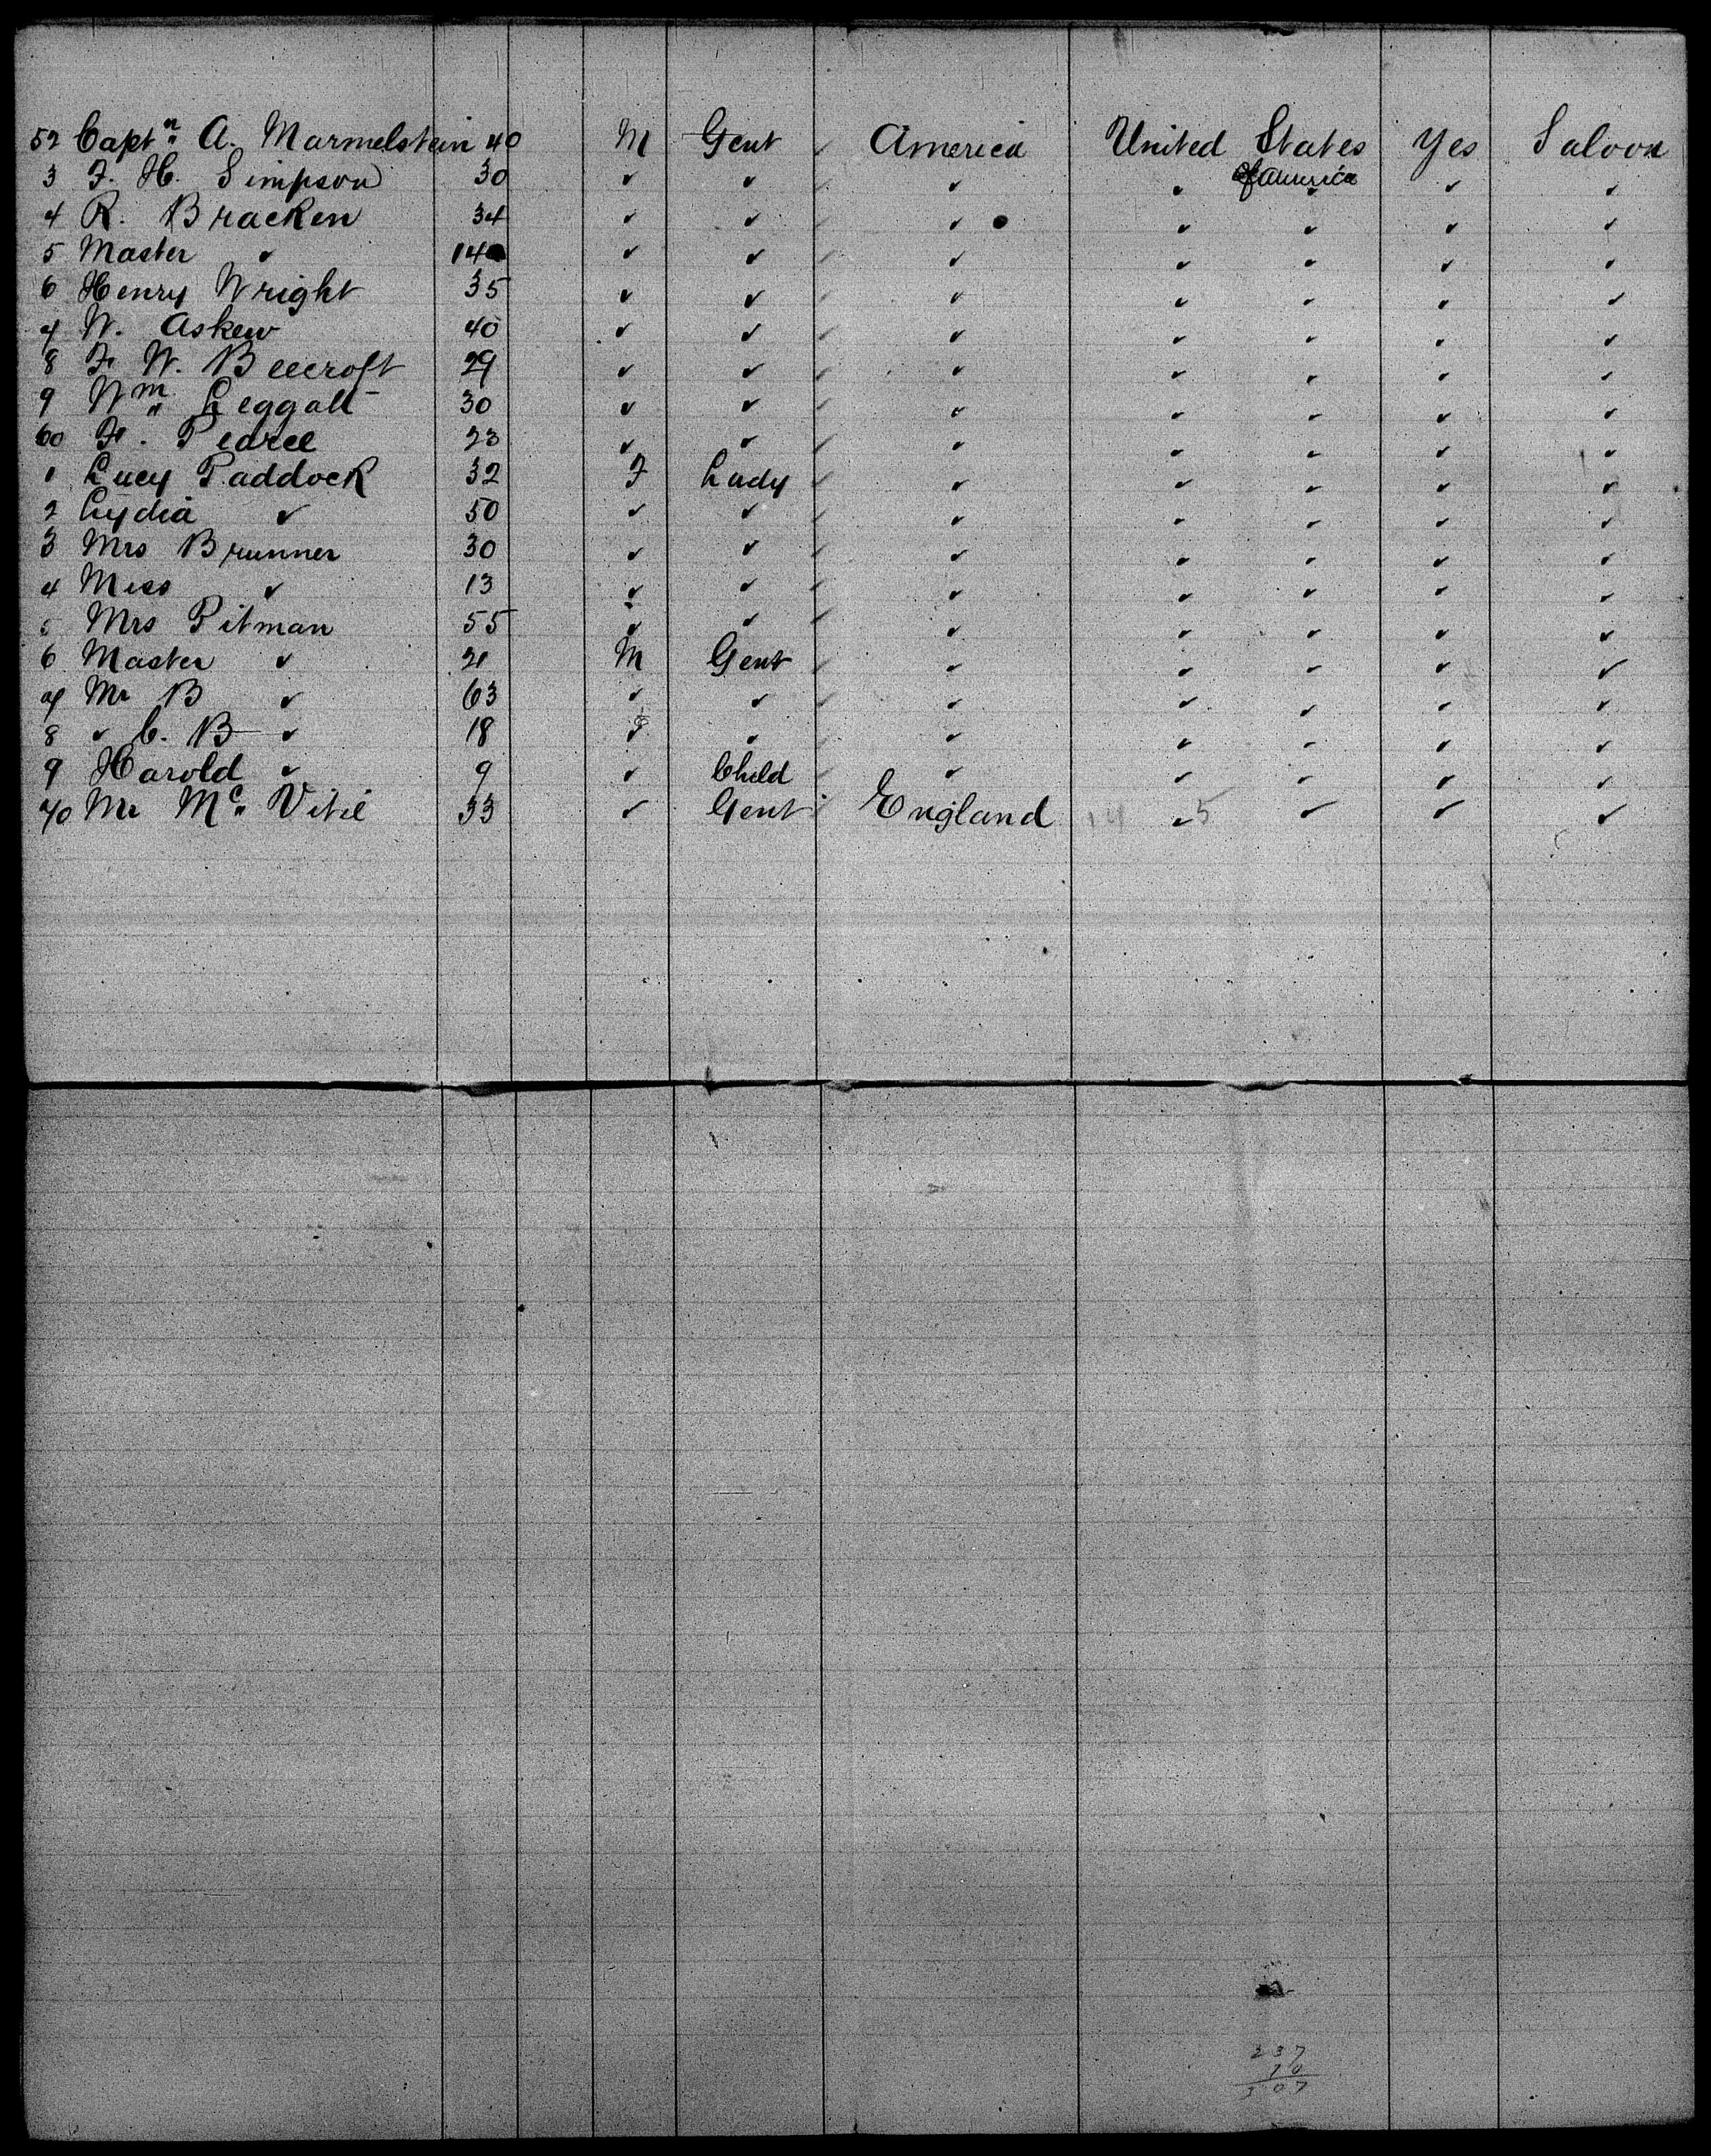 52 Captn A. Marmelstein 40 M Gent America United States Yes Saloon
of America
3 F. H. Simpson 30 ✓ ✓ ✓ ✓ ✓ ✓ ✓
4 R. Bracken 34 ✓ ✓ ✓ ✓ ✓ ✓ ✓
5 Master ✓ 14 ✓ ✓ ✓ ✓ ✓ ✓ ✓
6 Henry Wright 35 ✓ ✓ ✓ ✓ ✓ ✓ ✓
7 W. Askew 40 ✓ ✓ ✓ ✓ ✓ ✓ ✓
8 F. W. Beecroft 29 ✓ ✓ ✓ ✓ ✓ ✓ ✓
9 Wm Leggatt 30 ✓ ✓ ✓ ✓ ✓ ✓ ✓
60 F. Pearce 23 ✓ ✓ ✓ ✓ ✓ ✓ ✓
1 Lucy Paddock 32 F Lady ✓ ✓ ✓ ✓ ✓
2 Lydia ✓ 50 ✓ ✓ ✓ ✓ ✓ ✓ ✓
3 Mrs Brunner 30 ✓ ✓ ✓ ✓ ✓ ✓ ✓
4 Miss ✓ 13 ✓ ✓ ✓ ✓ ✓ ✓ ✓
5 Mrs Pitman 55 ✓ ✓ ✓ ✓ ✓ ✓ ✓
6 Master ✓ 21 M Gent ✓ ✓ ✓ ✓ ✓
7 Mr B ✓ 63 ✓ ✓ ✓ ✓ ✓ ✓ ✓
8 ✓ C. B ✓ 18 ✓ ✓ ✓ ✓ ✓ ✓ ✓
9 Harold ✓ 9 ✓ Child ✓ ✓ ✓ ✓ ✓
70 Mr Mc Vitie 33 ✓ Gent England ✓ ✓ ✓ ✓
237
70
307